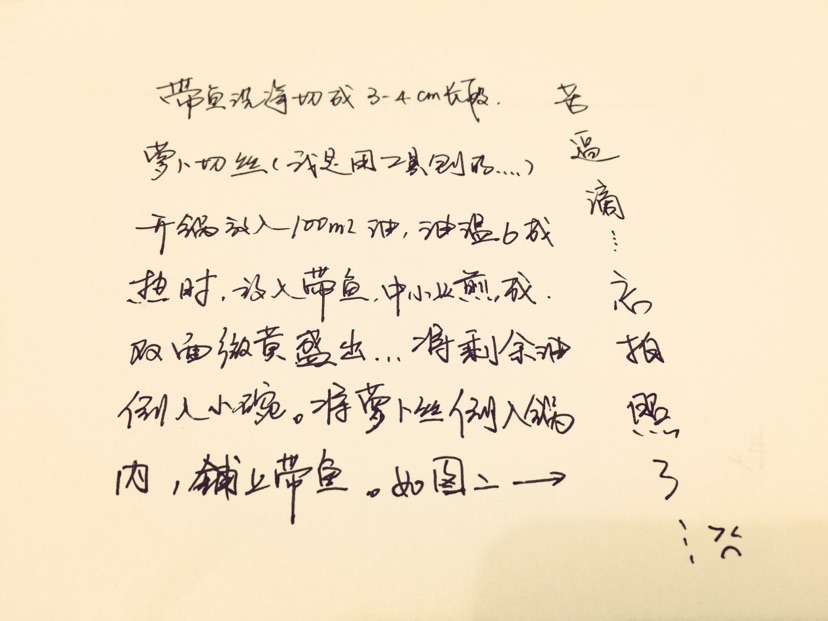 带鱼洗净切成3-4cm长段.
萝卜切丝(我是用工具刨的....)
开锅放入100ml油,油温6成
热时,放入带鱼,中小火煎,成.
双面微黄盛出...将剩余油
倒入小碗。将萝卜丝倒入锅
内,铺上带鱼。如图二→
苦逼滴...忘拍照了...